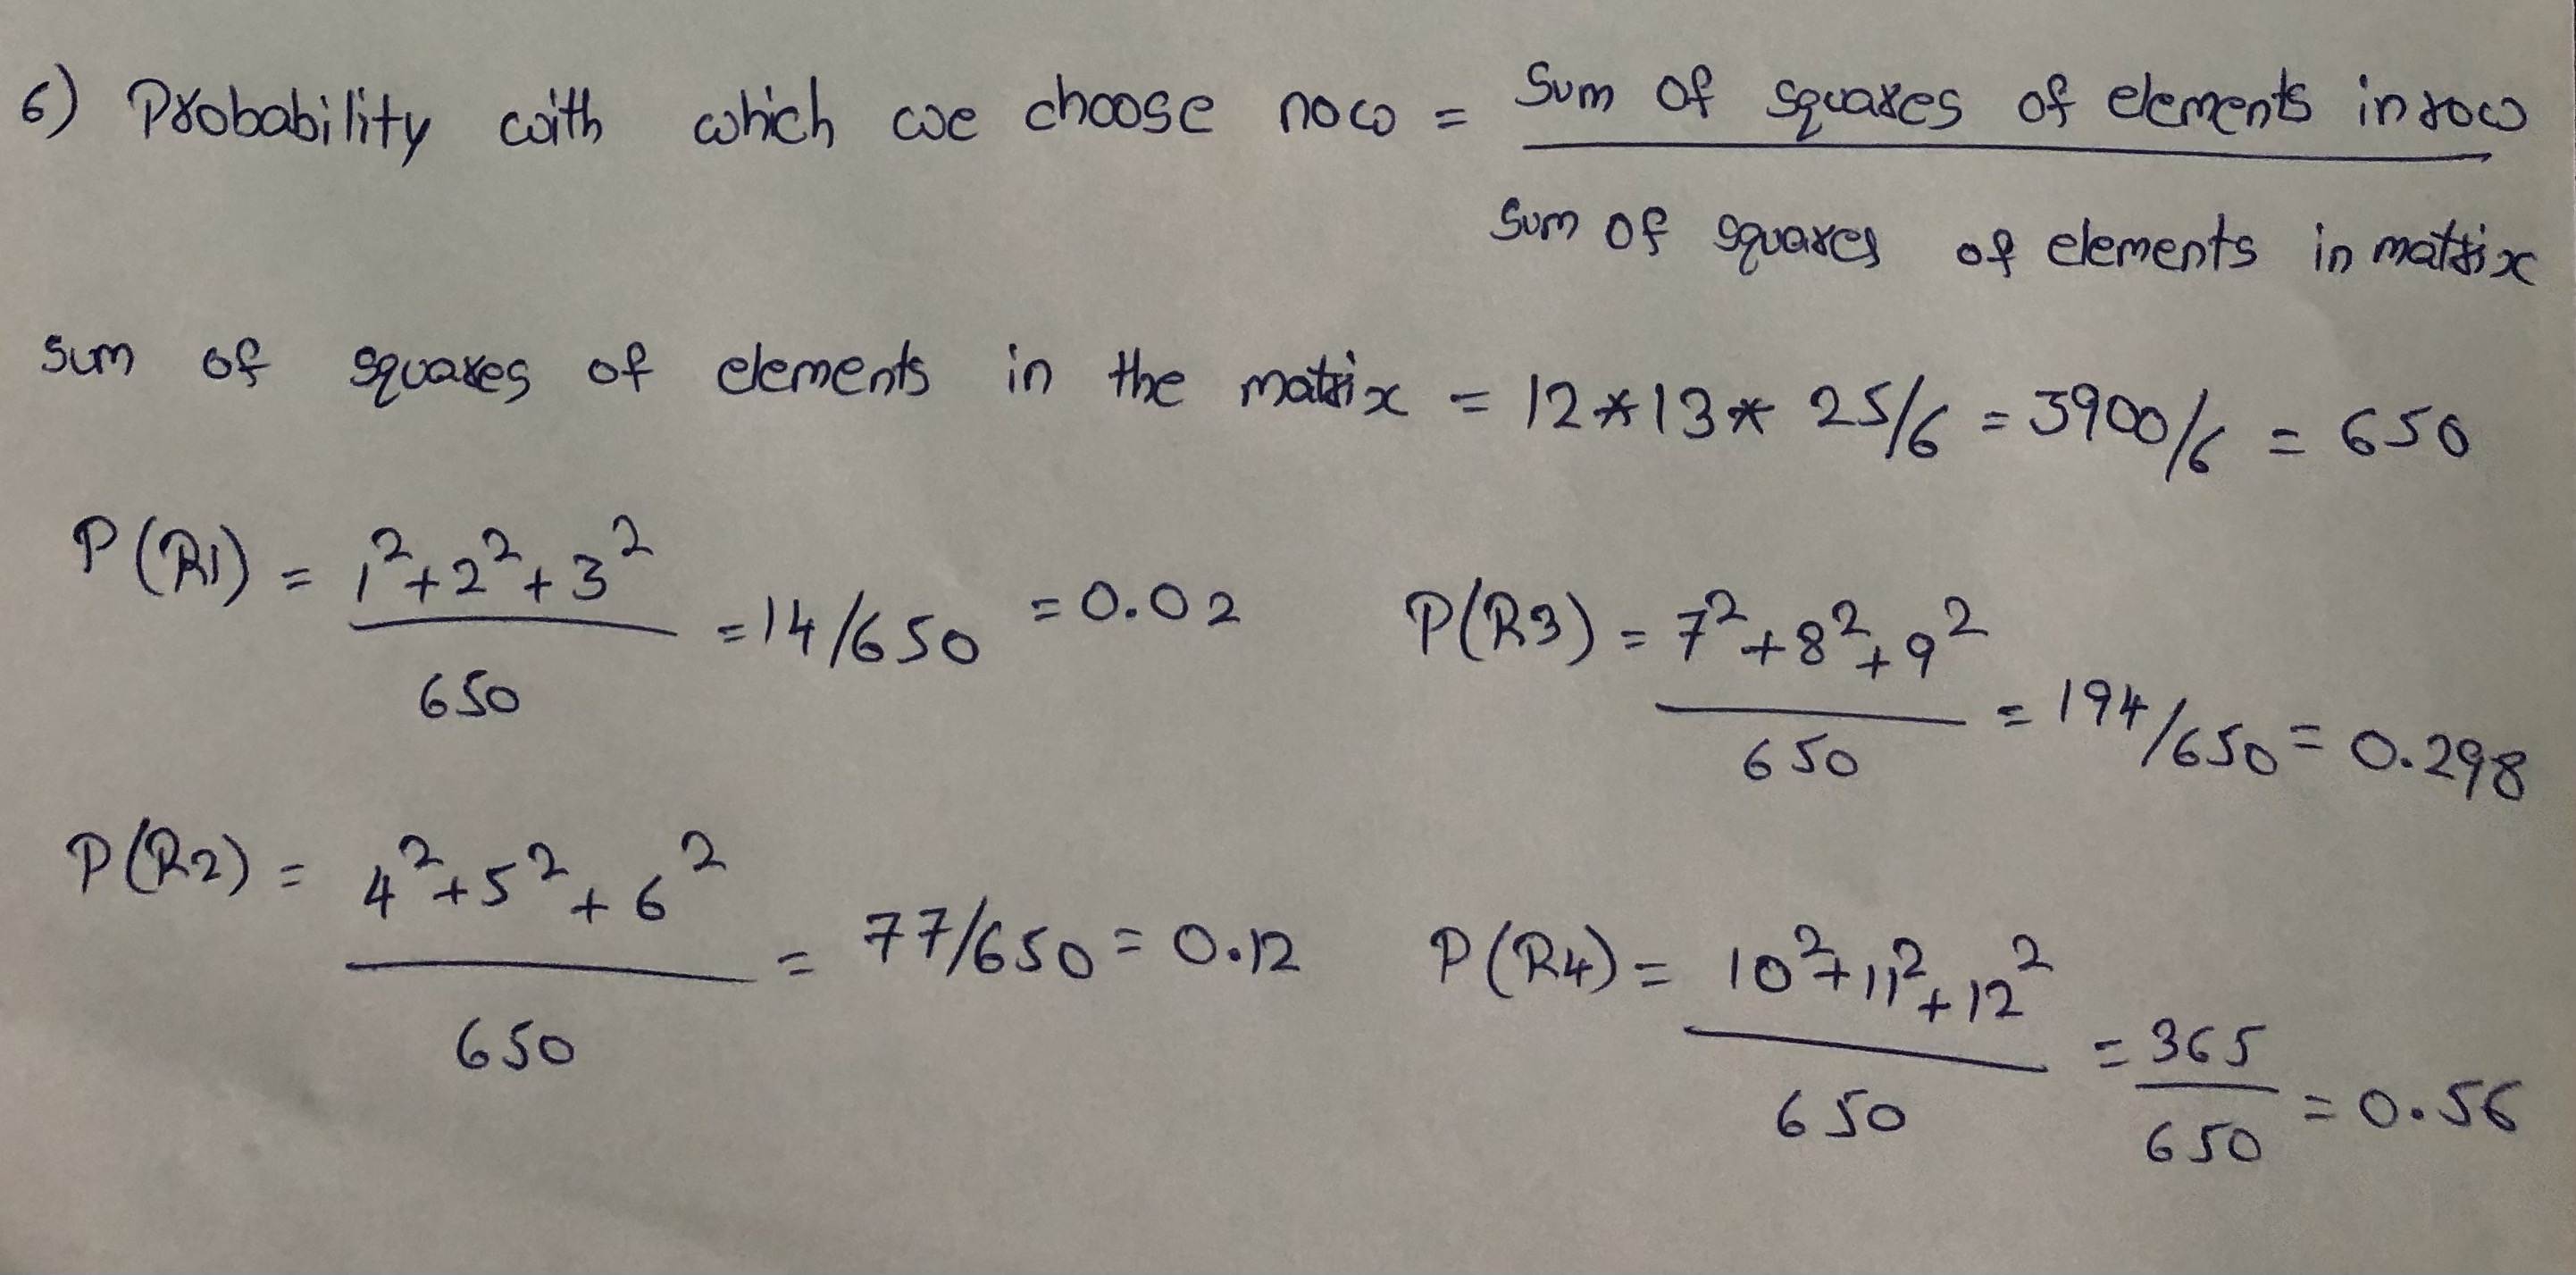 6) Probability with which we choose now = Sum of squares of elements in row
sum of squares of elements in matrix
sum of squares of elements in the matrix = 12*13*25/6 = 3900/6 = 650
P(R1) = 1²+2²+3² / 650 = 14/650 = 0.02
P(R3) = 7²+8²+9² / 650 = 194/650 = 0.298
P(R2) = 4²+5²+6² / 650 = 77/650 = 0.12
P(R4) = 10²+11²+12² / 650 = 365/650 = 0.56